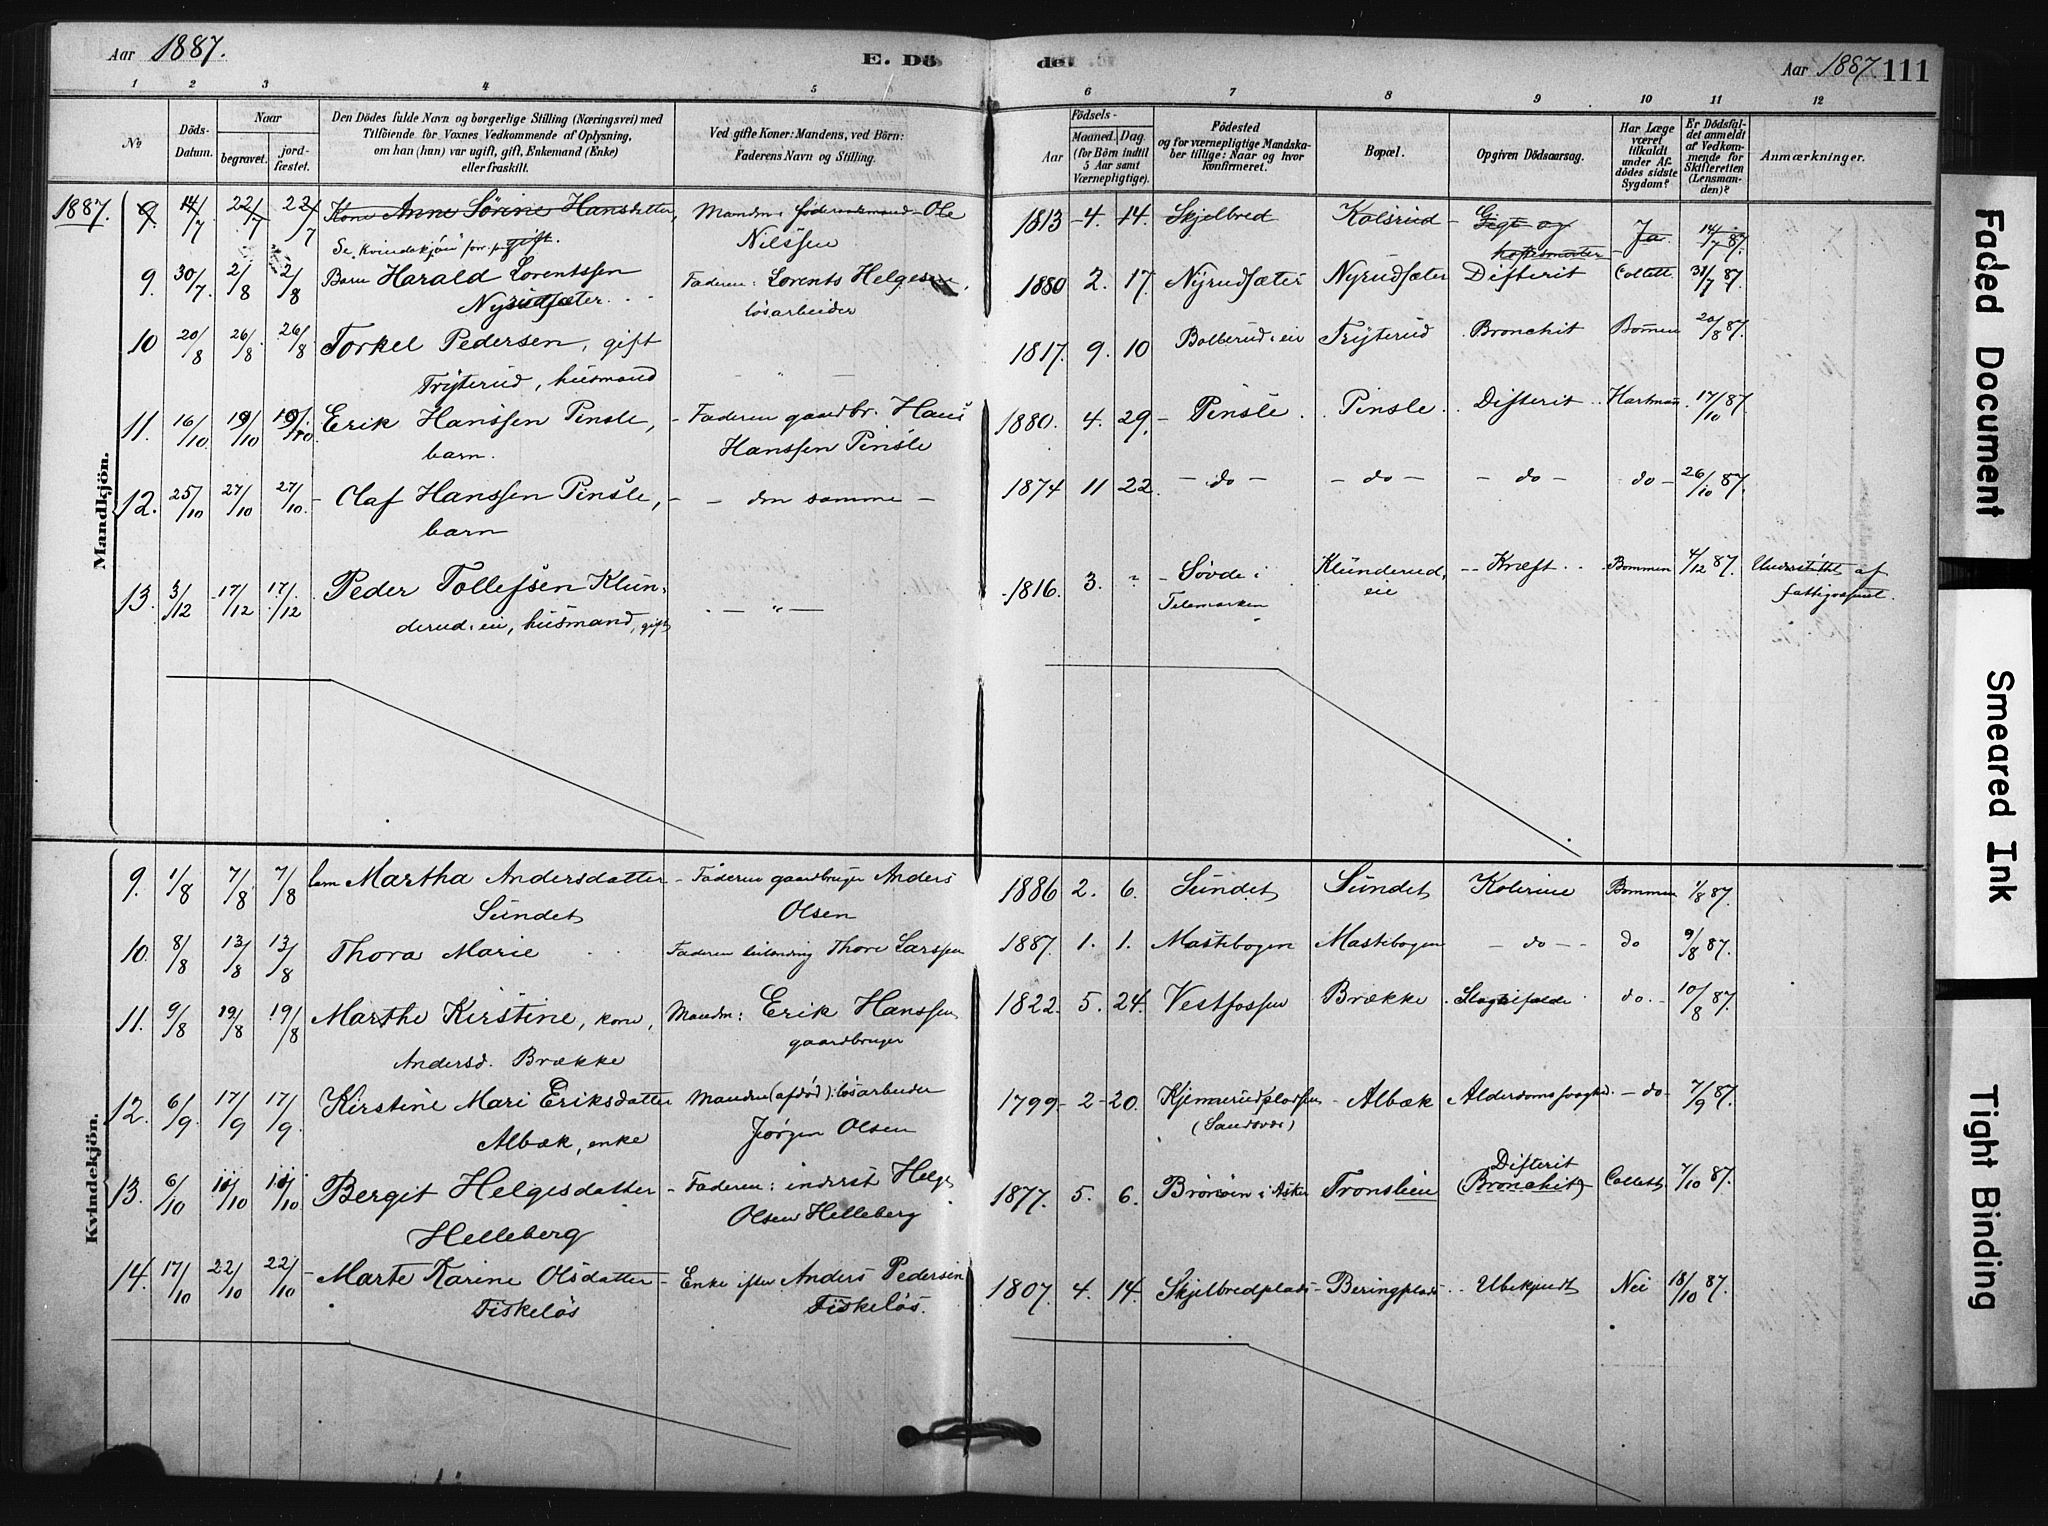 Aar 1887.
E. Dö
det
Aar 1887. 111
1 2 3 4 5 6 7 8 9 10 11 12
No
Döds-Datum.
Naar
begravet.
jord-fæstet.
Den Dödes fulde Navn og borgerlige Stilling (Næringsvei) med
Tilföiende for Voxnes Vedkommende af Oplysning,
om han (hun) var ugift, gift, Enkemand (Enke)
eller fraskilt.
Ved gifte Koner: Mandens, ved Börn:
Faderens Navn og Stilling.
Födsels-
Aar
Maaned. Dag.
(for Börn indtil
5 Aar samt
Værnepligtige).
Födested
og for værnepligtige Mandska-
ber tillige: Naar og hvor
konfirmeret.
Bopæl.
Opgiven Dödsaarsag.
Har Læge
været
tilkaldt
under Af-
dödes sidste
Sygdom?
Er Dödsfal-
det anmeldt
af Vedkom-
mende for
Skifteretten
(Lensman-
den)?
Anmærkninger.
Mandkjön.
1887. 9. 14/7 22/7 22/7 Kone Anne Sörine Hansdatter, Manden: føderaadsmand Ole 1813 4. 14. Skjelbred Kolsrud Gigt og Ja 14/7 87.
Se "Kvindekjön" forr. pag. gift. Nilssen
9. 30/7 2/8 2/8 Barn Harald Lorentssen Faderen: Lorents Helgesen, 1880 2. 17. Nyrudsæter Nyrudsæter Difterit Collett 31/7 87.
Nyrudsæter løsarbeider
10 20/8 26/8 26/8 Torkel Pedersen, gift — " — 1817. 9. 10 Bollerud eie Tryterud Bronchit Bommen 20/8 87.
Tryterud, husmand
11. 16/10 19/10 19/10 Erik Hanssen Pinsle, Faderen gaardbr. Hans 1880. 4. 29. Pinsle Pinsle Difterit Hartmann 17/10 87.
barn. Hanssen Pinsle
12. 25/10 27/10 27/10 Olaf Hanssen Pinsle, den samme 1874 11 22. do do do do 26/10 87.
barn
13. 3/12 17/12 17/12 Peder Tollefsen Klun- — " — 1816. 3. " Sövde i Klunderud, Kræft Bommen 4/12 87. Understöttet af
derud. eie, husmand, gift Telemarken eie fattigvæsnet.
Kvindekjön.
9. 1/8 7/8 7/8 barn Martha Andersdatter Faderen gaardbruger Anders 1886 2. 6. Sundet Sundet Kolerine Bommen 1/8 87.
Sundet Olsen
10. 8/8 13/8 13/8 Thora Marie Faderen leilending Thore Larssen 1887. 1. 1. Mastebogen Mastebogen do do 9/8 87.
11. 9/8 19/8 19/8 Marthe Kirstine, kone, Manden: Erik Hanssen 1822. 5. 24. Vestfossen Brække Slagtilfælde do 10/8 87.
Andersd. Brække gaardbruger
12. 6/9 17/9 17/9 Kirstine Mari Eriksdatter Manden (afdöd): lösarbeider 1799 2 20. Kjemerudpladsen Albæk Alderdomssvaghed do 7/9 87.
Albæk, enke Jörgen Olsen (Sandsvær)
13. 6/10 11/10 11/10 Bergit Helgesdatter Faderen: inderst Helge 1877. 5. 6. Brönöen i Asker Tronslien Difterit (Bronchit) Collett 7/10 87.
Helleberg Olsen Helleberg
14. 17/10 22/10 22/10 Marte Karine Olsdatter Enke efter Anders Pedersen 1807. 4. 14. Skjelbredplads Beringplads Ubekjendt Nei 18/10 87.
Fiskelös Fiskelös.
Faded Document
Smeared Ink
Tight Binding